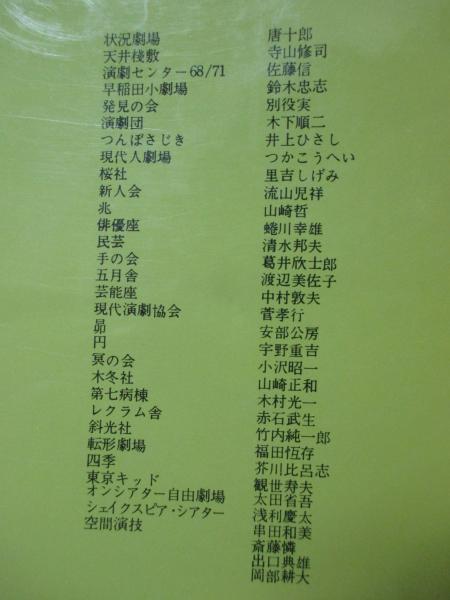 状況劇場
天井桟敷
演劇センター68/71
早稲田小劇場
発見の会
演劇団
つんぼさじき
現代人劇場
桜社
新人会
兆
俳優座
民芸
手の会
五月舎
芸能座
現代演劇協会
昴
円
冥の会
木冬社
第七病棟
レクラム舎
斜光社
転形劇場
四季
東京キッド
オンシアター自由劇場
シェイクスピア・シアター
空間演技
唐十郎
寺山修司
佐藤信
鈴木忠志
別役実
木下順二
井上ひさし
つかこうへい
里吉しげみ
流山児祥
山崎哲
蜷川幸雄
清水邦夫
葛井欣士郎
渡辺美佐子
中村敦夫
菅孝行
安部公房
宇野重吉
小沢昭一
山崎正和
木村光一
赤石武生
竹内純一郎
福田恆存
芥川比呂志
観世寿夫
太田省吾
浅利慶太
串田和美
斎藤憐
出口典雄
岡部耕大